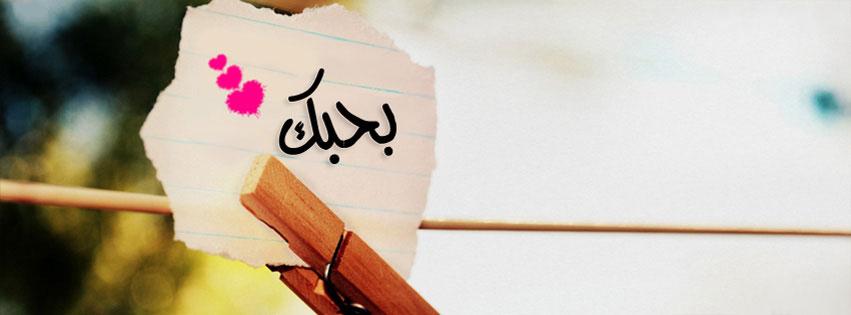 بحبك